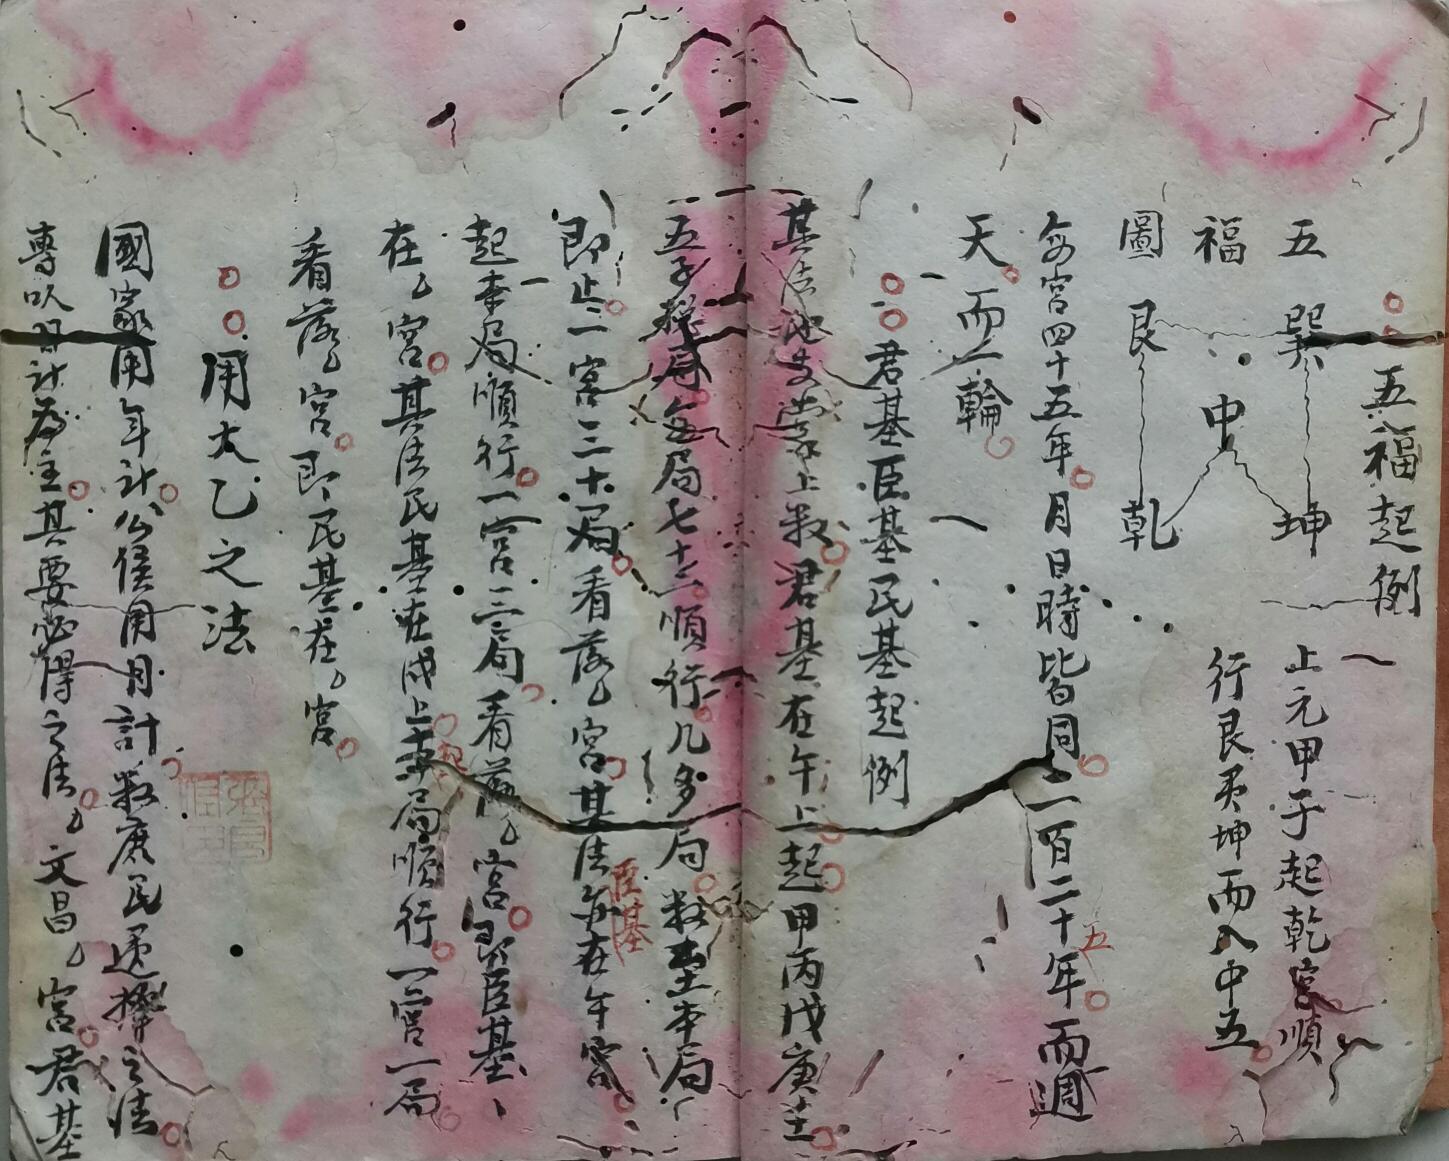 五福起例
五 巽 坤 上元甲子起乾宮順
福 中 行艮巽坤而入中五
圖 艮 乾
每宮四十五年月日時皆同二百二十五年而週
天而一輪
君基臣基民基起例
其法 上数君基在午上起甲丙戊庚壬
五子 局每局七十二順行几多局数至本局
即止一宮三十局看落宮其法臣基在午宮
起本局順行一宮三局看落宮即臣基
在宮其法民基在戌上起本局順行一宮一局
看落宮即民基在宮
用太乙之法
國家用年計公侯用月計数庶民 擇之法
專以日計為主其要必得之法文昌宮君基